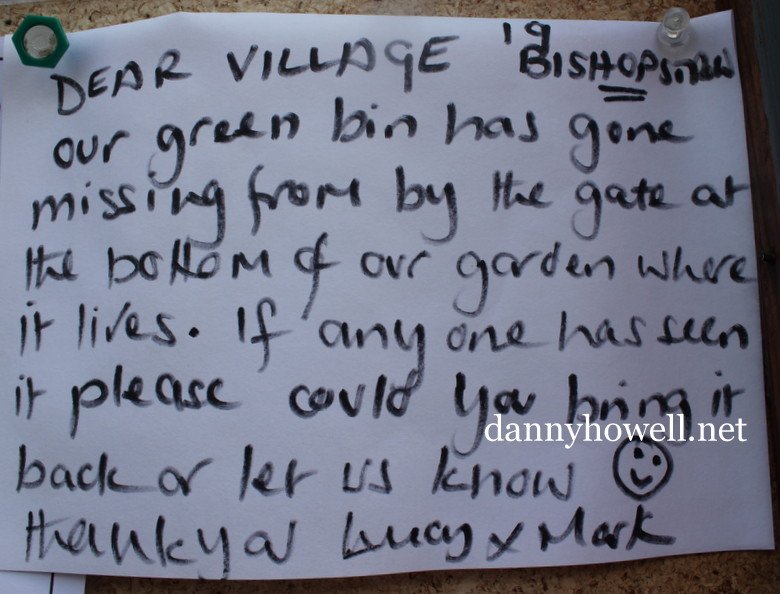 DEAR VILLAGE 19
BISHOPSTROW
our green bin has gone
missing from by the gate at
the bottom of our garden where
it lives. If any one has seen
it please could you bring it
dannyhowell.net
back or let us know
thankyou Lucy x Mark